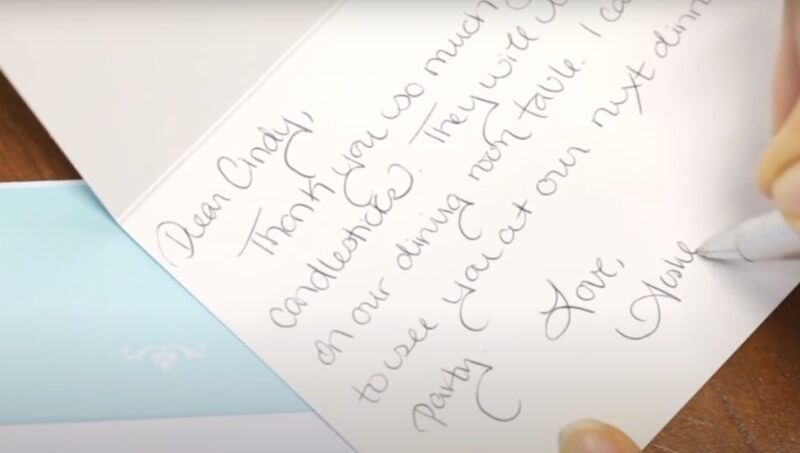 Dear Cindy,
Thank you so much
candlesticks. They will
on our dining room table. I
to see you at our next
party.
Love,